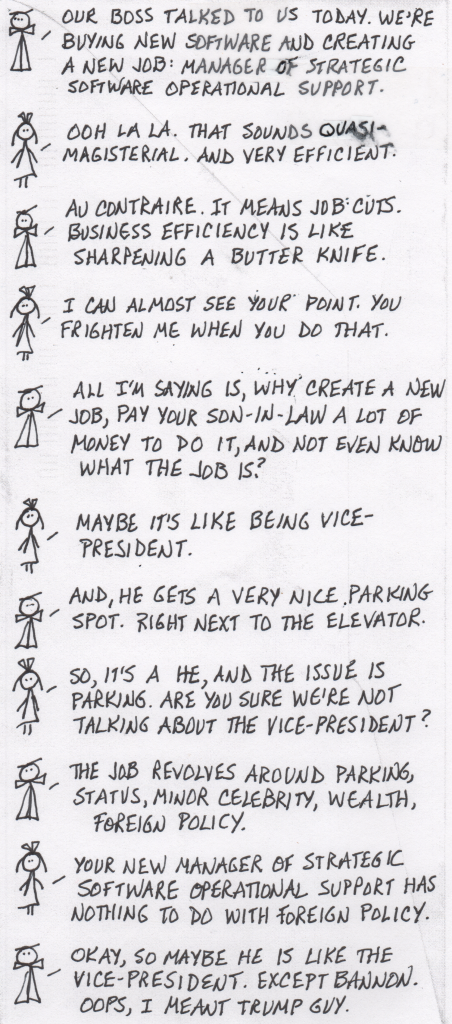 OUR BOSS TALKED TO US TODAY. WE'RE
BUYING NEW SOFTWARE AND CREATING
A NEW JOB: MANAGER OF STRATEGIC
SOFTWARE OPERATIONAL SUPPORT.
OOH LA LA. THAT SOUNDS QUASI-
MAGISTERIAL. AND VERY EFFICIENT.
AU CONTRAIRE. IT MEANS JOB CUTS.
BUSINESS EFFICIENCY IS LIKE
SHARPENING A BUTTER KNIFE.
I CAN ALMOST SEE YOUR POINT. YOU
FRIGHTEN ME WHEN YOU DO THAT.
ALL I'M SAYING IS, WHY CREATE A NEW
JOB, PAY YOUR SON-IN-LAW A LOT OF
MONEY TO DO IT, AND NOT EVEN KNOW
WHAT THE JOB IS?
MAYBE IT'S LIKE BEING VICE-
PRESIDENT.
AND, HE GETS A VERY NICE PARKING
SPOT. RIGHT NEXT TO THE ELEVATOR.
SO, IT'S A HE, AND THE ISSUE IS
PARKING. ARE YOU SURE WE'RE NOT
TALKING ABOUT THE VICE-PRESIDENT?
THE JOB REVOLVES AROUND PARKING,
STATUS, MINOR CELEBRITY, WEALTH,
FOREIGN POLICY.
YOUR NEW MANAGER OF STRATEGIC
SOFTWARE OPERATIONAL SUPPORT HAS
NOTHING TO DO WITH FOREIGN POLICY.
OKAY, SO MAYBE HE IS LIKE THE
VICE-PRESIDENT. EXCEPT BANNON.
OOPS, I MEANT TRUMP GUY.